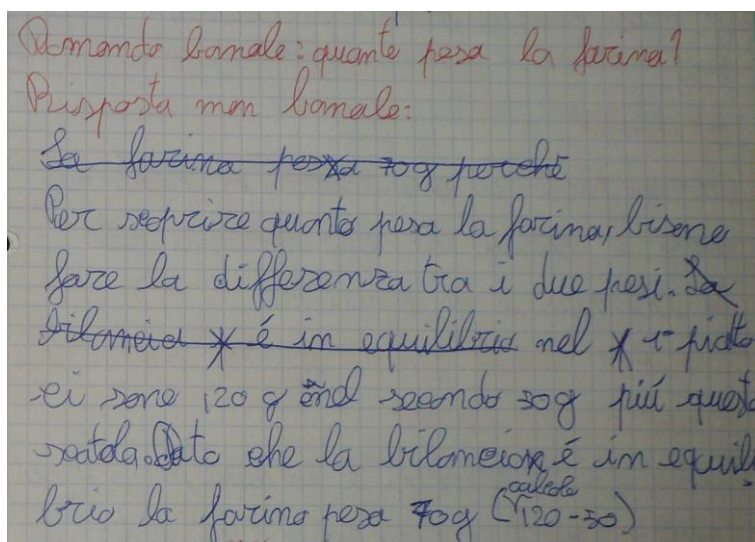 Domanda banale: quanto pesa la farina?
Risposta non banale:
La farina pesa 70g perché
Per scoprire quanto pesa la farina, bisone
fare la differenza tra i due pesi. La
bilancia è in equilibrio nel 1° piatto
ci sono 120 g e nel secondo 50g più questa
scatola. Dato che la bilancia è in equili-
brio la farina pesa 70g (calcolo 120-50)